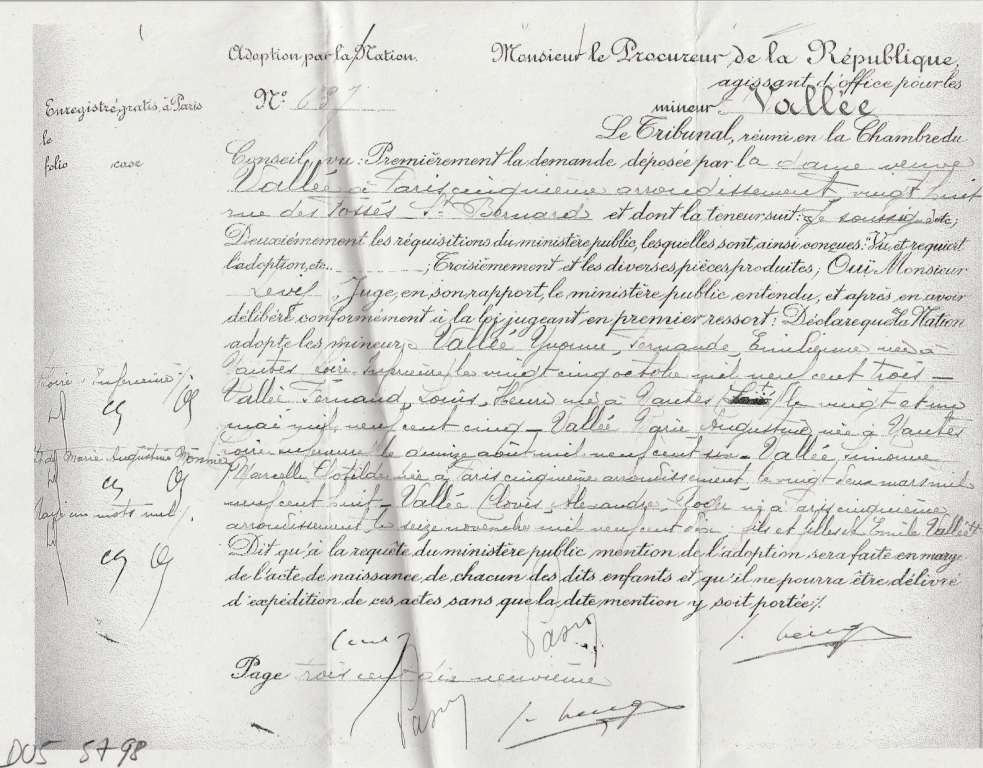 Adoption par la Nation.
Monsieur le Procureur de la République,
agissant d'office pour les
mineurs Vallée
N° 637
Enregistré gratis, à Paris
le
folio case
Le Tribunal, réuni en la Chambre du
Conseil, vu: Premièrement la demande déposée par la dame veuve
Vallée à Paris cinquième arrondissement, vingt huit
rue des Fossés St Bernard et dont la teneur suit: Je soussignée etc;
Deuxièmement les réquisitions du ministère public, lesquelles sont ainsi conçues: "Vu et requiert
l'adoption, etc. ; Troisièmement et les diverses pièces produites; Ouï Monsieur
Juge, en son rapport, le ministère public entendu, et après en avoir
délibéré conformément à la loi jugeant en premier ressort: Déclare que la Nation
adopte les mineurs: Vallée Yvonne, Fernande, Emilienne née à
Nantes Loire-Inférieure le vingt cinq octobre mil neuf cent trois —
Vallée Fernand, Louis, Henri né à Nantes le vingt et un
mai mil neuf cent cinq — Vallée Marie Augustine née à Nantes
Loire-Inférieure le quinze août mil neuf cent six — Vallée Simone
Marcelle Clotilde née à Paris cinquième arrondissement, le vingt deux mars mil
neuf cent huit — Vallée Clovis Alexandre né à Paris cinquième
arrondissement le seize novembre mil neuf cent dix fils et filles de Emile Vallée et
Loire Inférieure /.
et de Marie Augustine Monnier
Rayé un mot nul /.
Dit qu'à la requête du ministère public mention de l'adoption sera faite en marge
de l'acte de naissance de chacun des dits enfants et qu'il ne pourra être délivré
d'expédition de ces actes sans que la dite mention y soit portée /.
Page trois cent dix neuvième
DOS 5798